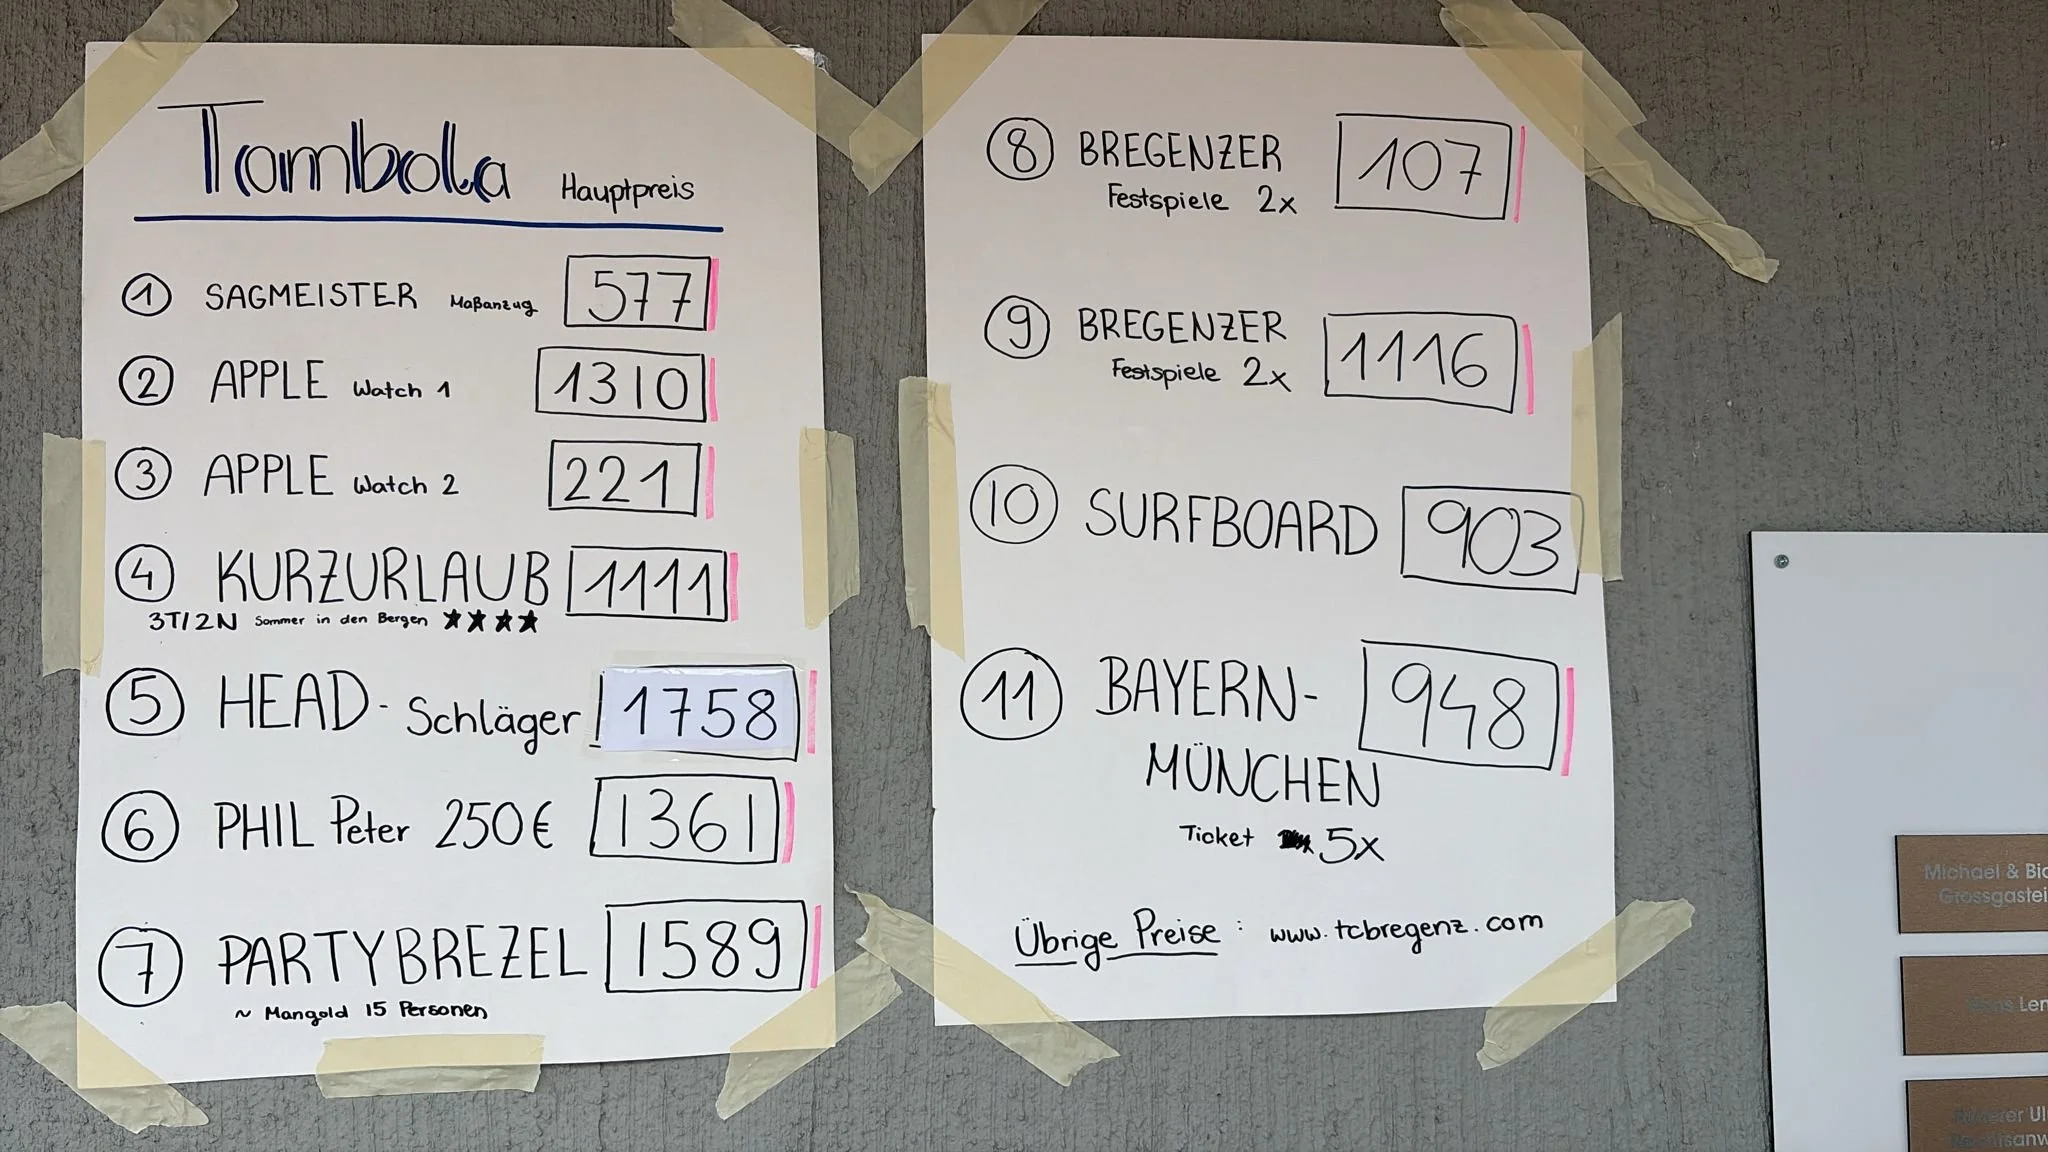 Tombola Hauptpreis
1 SAGMEISTER Maßanzug 577
2 APPLE Watch 1 1310
3 APPLE Watch 2 221
4 KURZURLAUB 1111
3T/2N Sommer in den Bergen ★★★★
5 HEAD - Schläger 1758
6 PHIL Peter 250€ 1361
7 PARTYBREZEL 1589
~ Mangold 15 Personen
8 BREGENZER 107
Festspiele 2x
9 BREGENZER 1116
Festspiele 2x
10 SURFBOARD 903
11 BAYERN- 948
MÜNCHEN
Ticket 5x
Übrige Preise: www.tcbregenz.com
Michael &